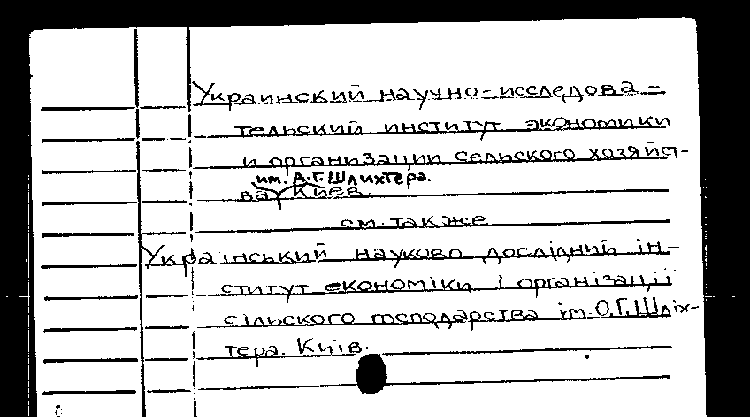 Украинский научно-исследова-
тельский институт экономики
и организации сельского хозяйст-
им. А.Г.Шлихтера.
ва, Киев.
см. также
Український науково дослідний ін-
ститут економіки і організації
сільского господарства ім. О.Г.Шліх-
тера. Київ.